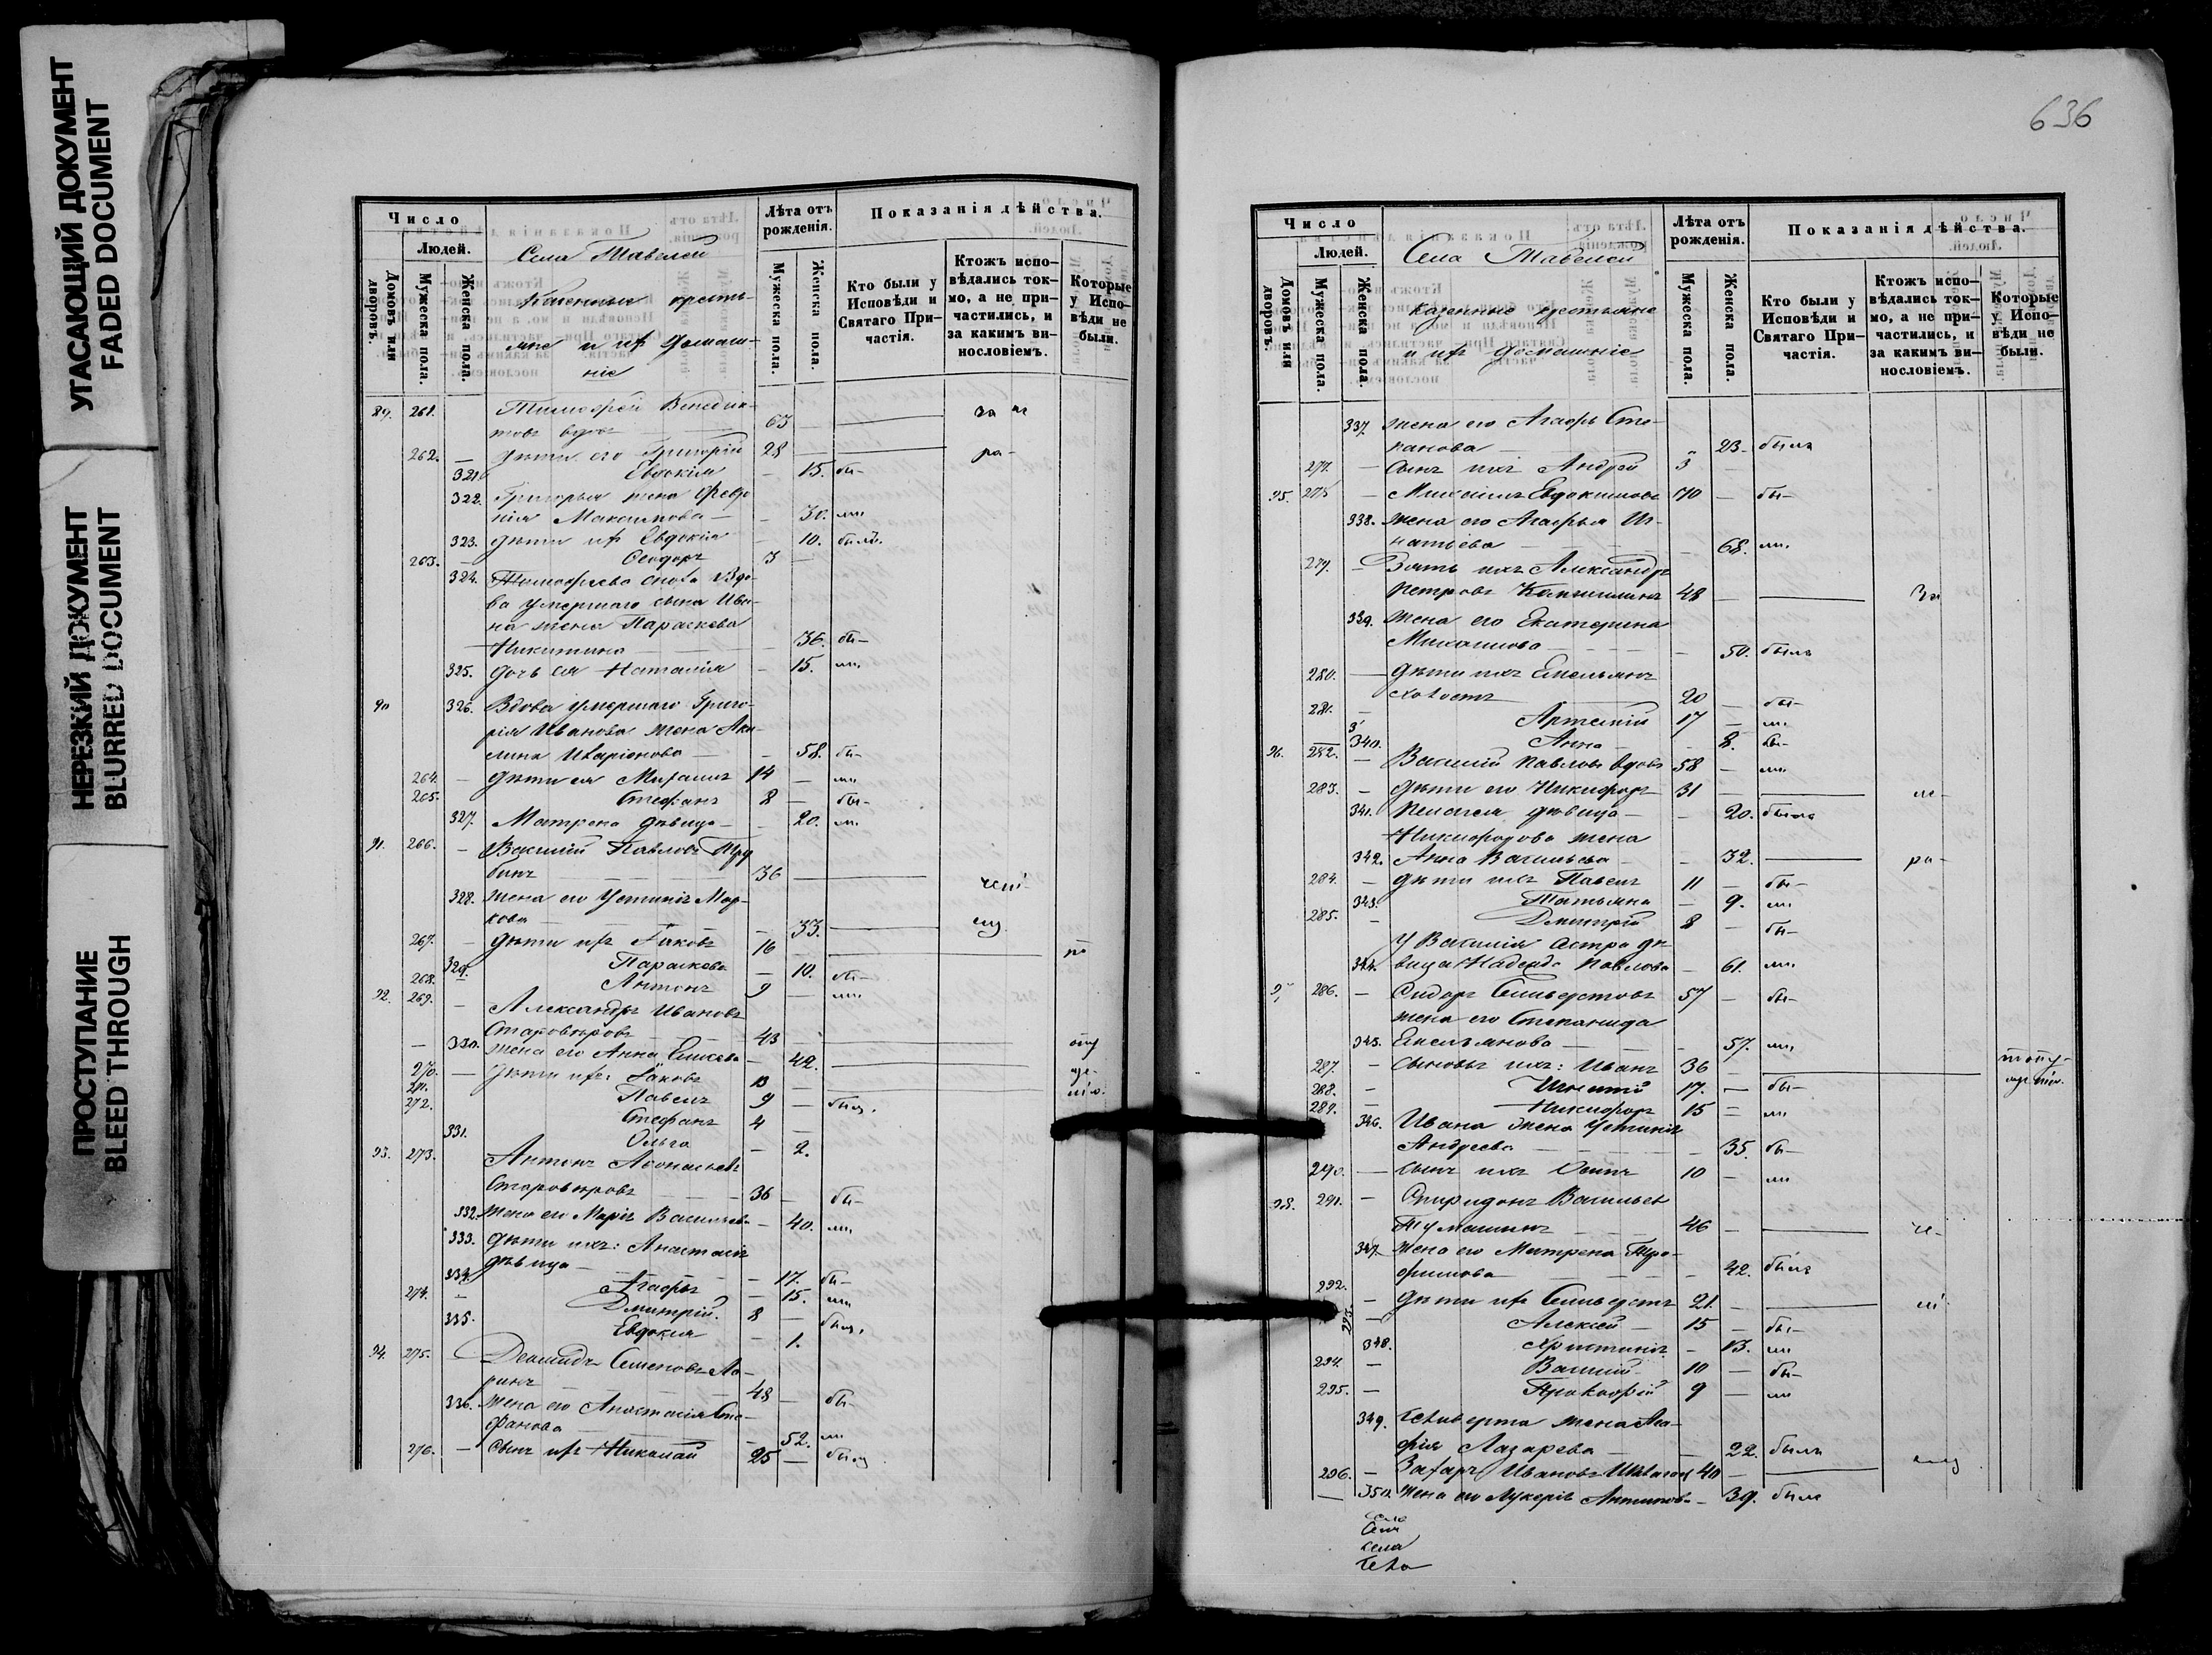 УГАСАЮЩИЙ ДОКУМЕНТ
FADED DOCUMENT
НЕРЕЗКИЙ ДОКУМЕНТ
BLURRED DOCUMENT
ПРОСТУПАНИЕ
BLEED THROUGH
Число
Людей.
Домовъ или дворовъ.
Мужеска пола.
Женска пола.
Села Тавелей
крестьяне и их домашніе
Лѣта отъ рожденія.
Мужеска пола.
Женска пола.
Показанія дѣйства.
Кто были у Исповѣди и Святаго Причастія.
Ктожъ исповѣдались токмо, а не причастились, и за какимъ винословіемъ.
Которые у Исповѣди не были.
89. 261. Тимофей Венедик-
товъ вдовъ 63
262. дѣти его Григорій 28
321. Евдокія 15. бы-
322. Григорья жена Февро
нія Максимова 30. ли
323. дѣти их Евдокія 10. были.
263. Феодоръ 3
324. Тимофеева сноха вдо-
ва умершаго сына Ива-
на жена Параскева
Никитина 36. бы-
325. дочь ея Наталія 15. ли
90 326. Вдова умершаго Григо-
рія Иванова жена Аку-
лина Иларіонова 58. бы-
264. дѣти ея Михаилъ 14 ли
265. Стефанъ 8 бы-
327. Матрена дѣвица 20. ли
91. 266. Василій Павловъ Тру
бинъ 36
328. жена его Устинія Мар-
кова 33.
267. дѣти их Іаковъ 16
329. Параскева 10. бы-
268. Антонъ 9 ли
92. 269. Александръ Ивановъ
Староверовъ 43
330. жена его Анна Елисева 42.
270. дѣти ихъ: Іаковъ 13
271. Павелъ 9
272. Стефанъ 4
331. Ольга 2.
93. 273. Антонъ Афонасьевъ
Староверовъ 36 бы-
332. жена его Марія Васильева 40. ли
333. дѣти ихъ: Анастасія
дѣвица 17. бы-
334. Агафья 15. ли
274. Дмитрій 8
335. Евдокія 1.
94. 275. Деомидъ Семеновъ Ла-
ринъ 48 бы-
336. жена его Анастасія Сте-
фанова 52. ли
276. Сынъ их Николай 25
636
Число
Людей.
Домовъ или дворовъ.
Мужеска пола.
Женска пола.
Села Тавелей
казенные крестьяне
и их домашніе
Лѣта отъ рожденія.
Мужеска пола.
Женска пола.
Показанія дѣйства.
Кто были у Исповѣди и Святаго Причастія.
Ктожъ исповѣдались токмо, а не причастились, и за какимъ винословіемъ.
Которые у Исповѣди не были.
337. жена его Агафья Сте-
панова 23. была
277. сынъ ихъ Андрей 3
95. 278 Михаилъ Евдокимовъ 70 бы-
338. жена его Агафья Иг-
натьева 68. ли
279. Зять ихъ Александръ
Петровъ 48
339. жена его Екатерина
Михаилова 50. была
280. дѣти ихъ Емельянъ
холостъ 20 бы-
281. Артемій 17 ли
340. Анна 8. бы-
96. 282. Василій Павловъ вдовъ 58 ли
283. дѣти его Никифоръ 31
341. Пелагея дѣвица 20. была
Никифорова жена
342. Анна Васильева 32.
284. дѣти ихъ Павелъ 11 бы-
343. Татьяна 9. ли
285. Дмитрій 8 бы-
У Василія сестра дѣ-
344. вица Надежда Павлова 61. ли
97 286. Сидоръ Селиверстовъ 57 бы-
жена его Степанида
345. Емельянова 57. ли
287. сыновья ихъ: Иванъ 36
288. Игнатій 17. бы-
289. Никифоръ 15 ли
346. Ивана жена Устинія
Андреева 35. бы-
290. сынъ ихъ Осипъ 10 ли
98. 291. Спиридонъ Васильевъ
Тумашинъ 46
347. жена его Матрена Тро-
фимова 42. была
292. дѣти их Селиверстъ 21.
293. Алексѣй 15 бы-
348. Христинія 13. ли
294. Василій 10 бы-
295. Прокофій 9 ли
349. Селиверста жена Ага-
фья Лазарева 22. была
296. Захаръ Ивановъ 40
350. жена его Лукерія Антипова 39. была